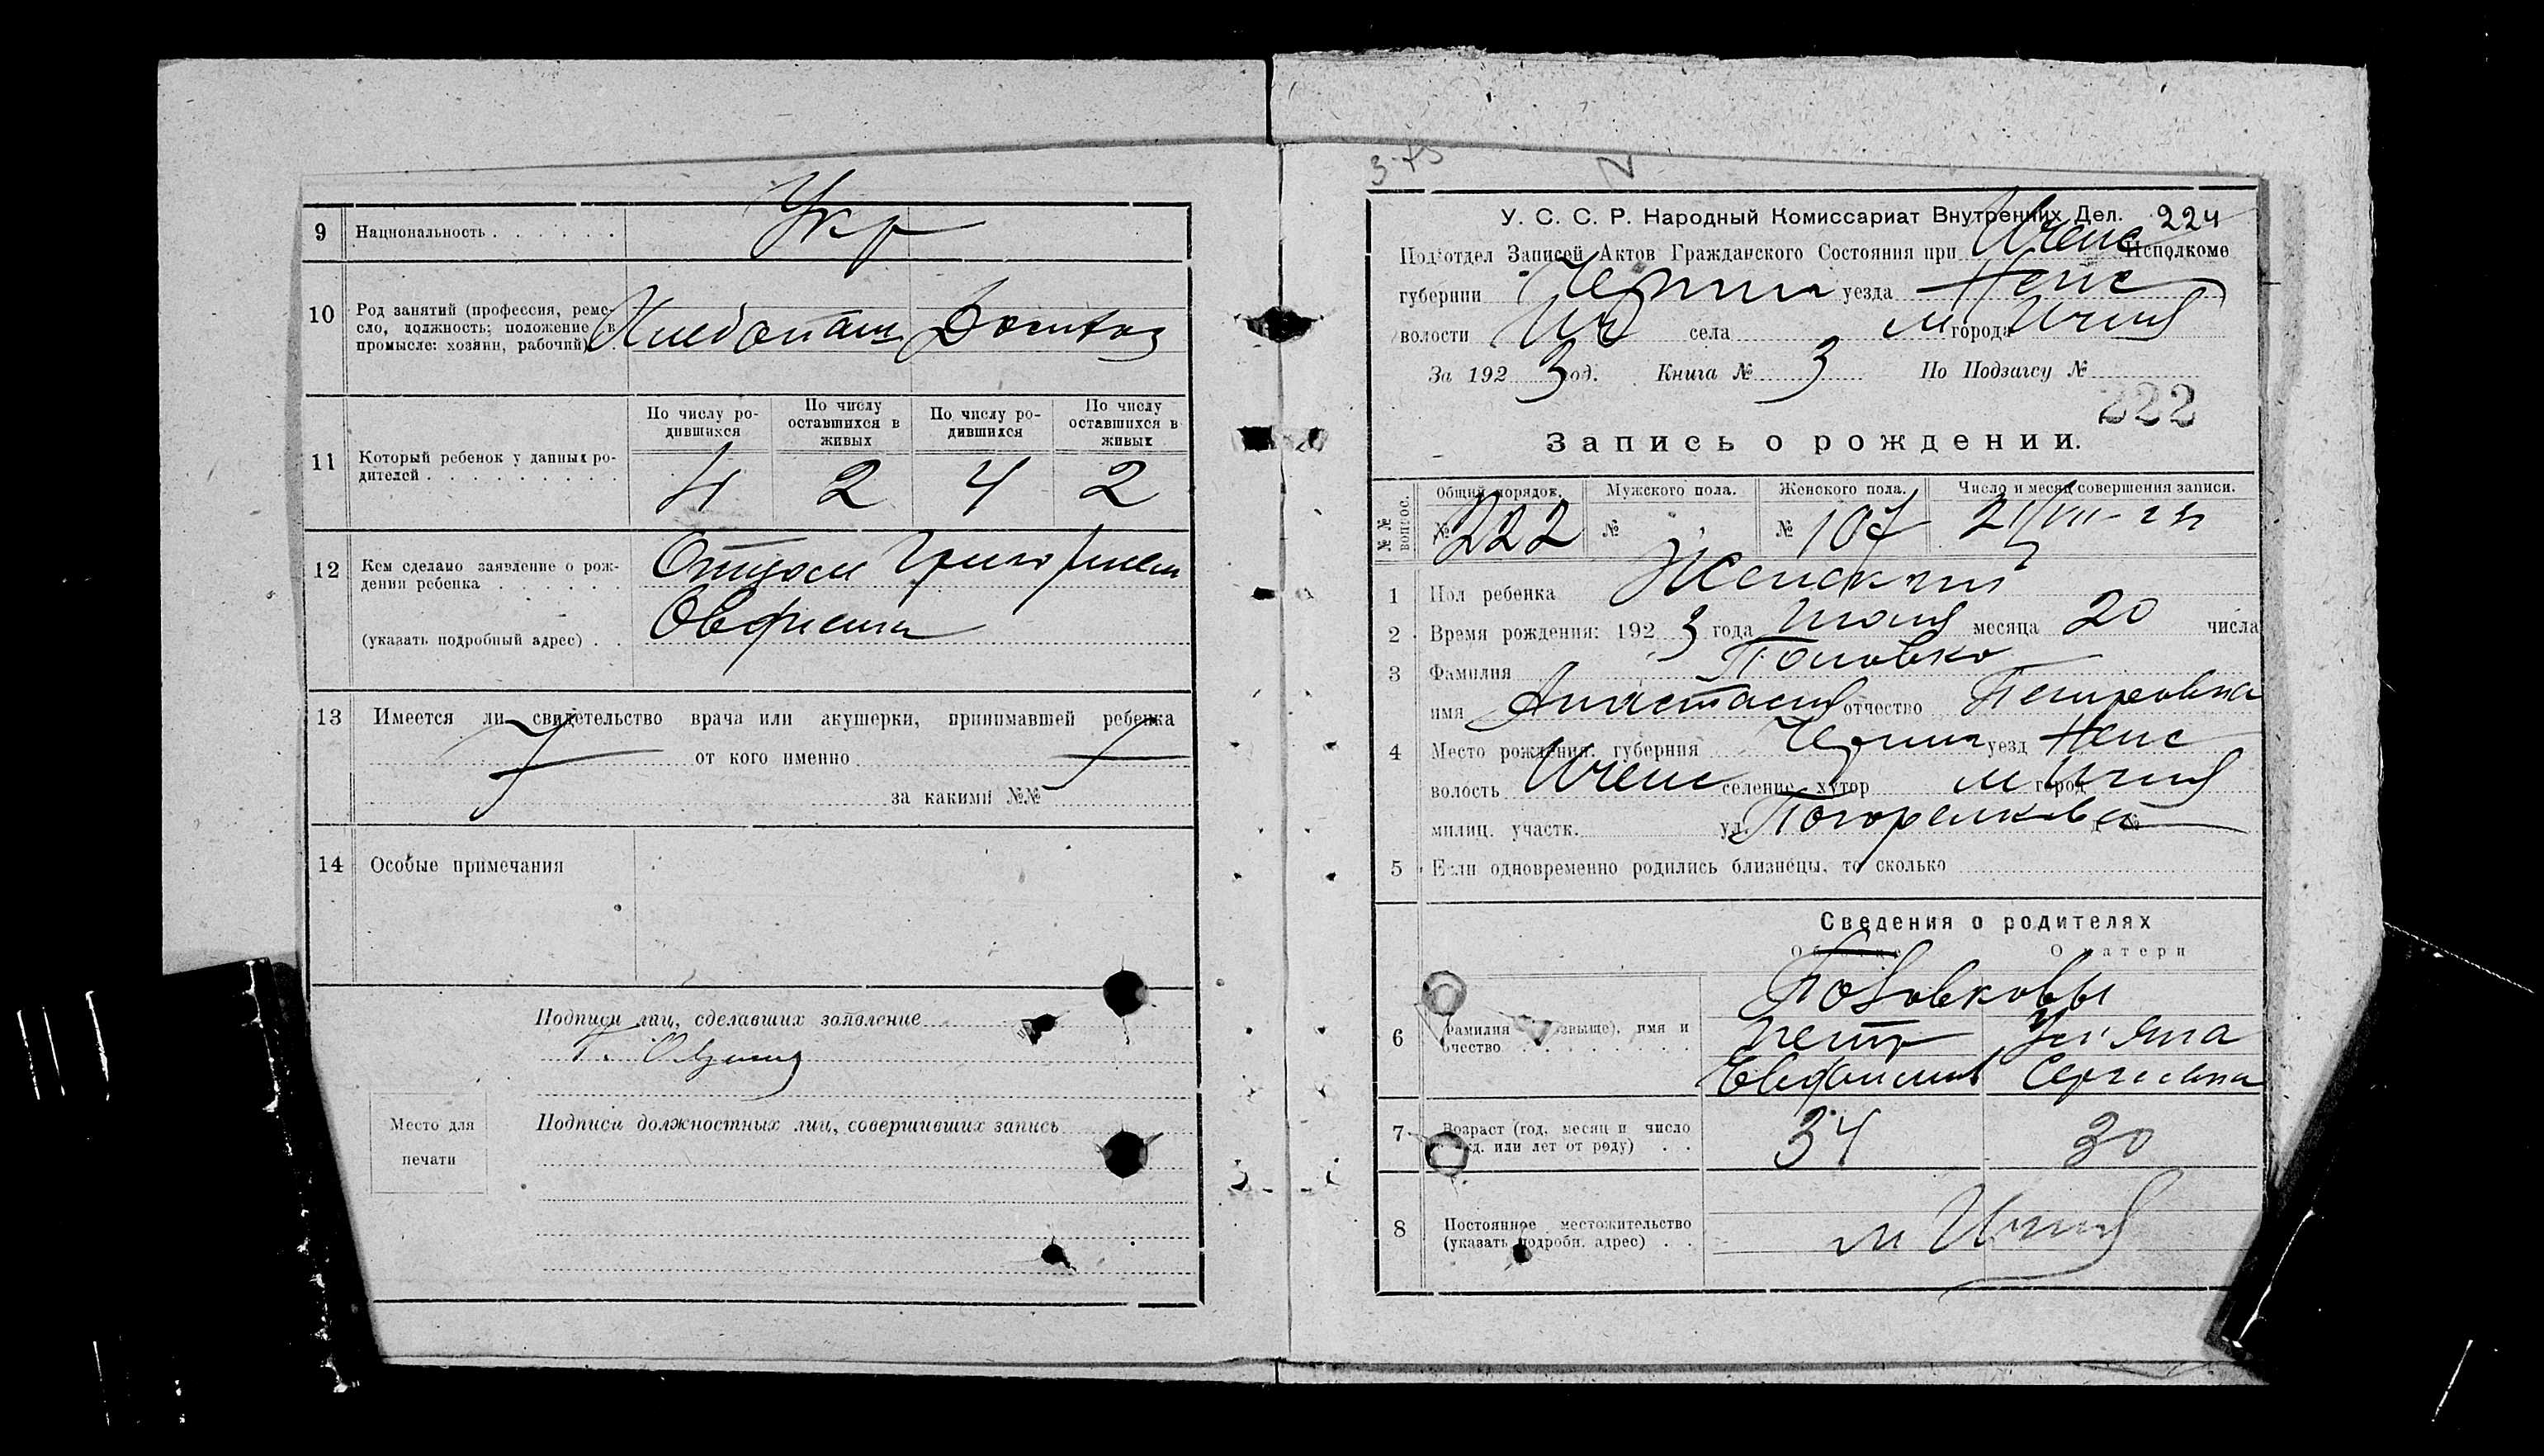 9 Национальность . . . . . . Укр
10 Род занятий (профессия, реме-
сло, должность; положение в
промысле: хозяин, рабочий) Хлебопаш Домохоз
11 Который ребенок у данных ро-
дителей . . . . . . . . . .
По числу ро-
дившихся
По числу
оставшихся в
живых
По числу ро-
дившихся
По числу
оставшихся в
живых
4 2 4 2
12 Кем сделано заявление о рож-
дении ребенка . . . . . . Отцом
(указать подробный адрес) . .
13 Имеется ли свидетельство врача или акушерки, принимавшей ребенка
от кого именно
за какими №№
14 Особые примечания
Подписи лиц, сделавших заявление
Место для
печати
Подписи должностных лиц, совершивших запись
У. С. С. Р. Народный Комиссариат Внутренних Дел. 224
Подотдел Записей Актов Гражданского Состояния при Иченс Исполкоме
губернии Черниг уезда Неж
волости Ич села м города Ичня
За 1923 год. Книга № 3 По Подзагсу №
222
Запись о рождении.
№№ вопрос.
Общий порядок. Мужского пола. Женского пола. Число и месяц совершения записи.
№ 222 № № 107 21/VII-23
1 Пол ребенка Женский
2 Время рождения: 1923 года Июля месяца 20 числа
3 Фамилия
имя Анастасия отчество Петровна
4 Место рождения: губерния Черниг уезд Неж
волость Иченс селение хутор м город Ичня
милиц. участк. ул.
5 Если одновременно родились близнецы, то сколько
Сведения о родителях
Об отце О матери
6 Фамилия (прозвище), имя и
отчество . . . . . . . .
Петр Ульяна
Сергеевна
7 Возраст (год, месяц и число
рожд. или лет от роду) . . 34 30
8 Постоянное местожительство
(указать подробн. адрес) . . м Ичня